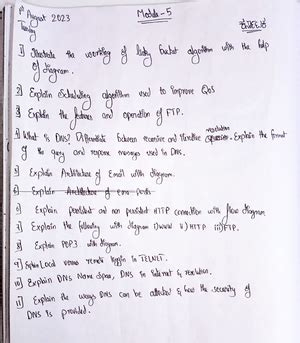 1st August 2023
Tuesday
Module - 5
1] Illustrate the working of leaky bucket algorithm with the help
of diagram.
2] Explain Scheduling algorithm used to improve QoS
3] Explain the features and operation of FTP.
4] What is DNS? Differentiate between recursive and iterative resolution Explain the format
of the query and response messages used in DNS.
5] Explain Architecture of Email with diagram.
6] Explain Architecture of
6] Explain persistent and non persistent HTTP connection with flow diagram
7] Explain the following with diagram i) WWW ii) HTTP iii) FTP.
8] Explain POP3 with diagram.
9] Explain Local versus remote loggin in TELNET.
10] Explain DNS Name Space, DNS in Internet & resolution.
11] Explain the ways DNS can be attacked & how the security of
DNS is provided.